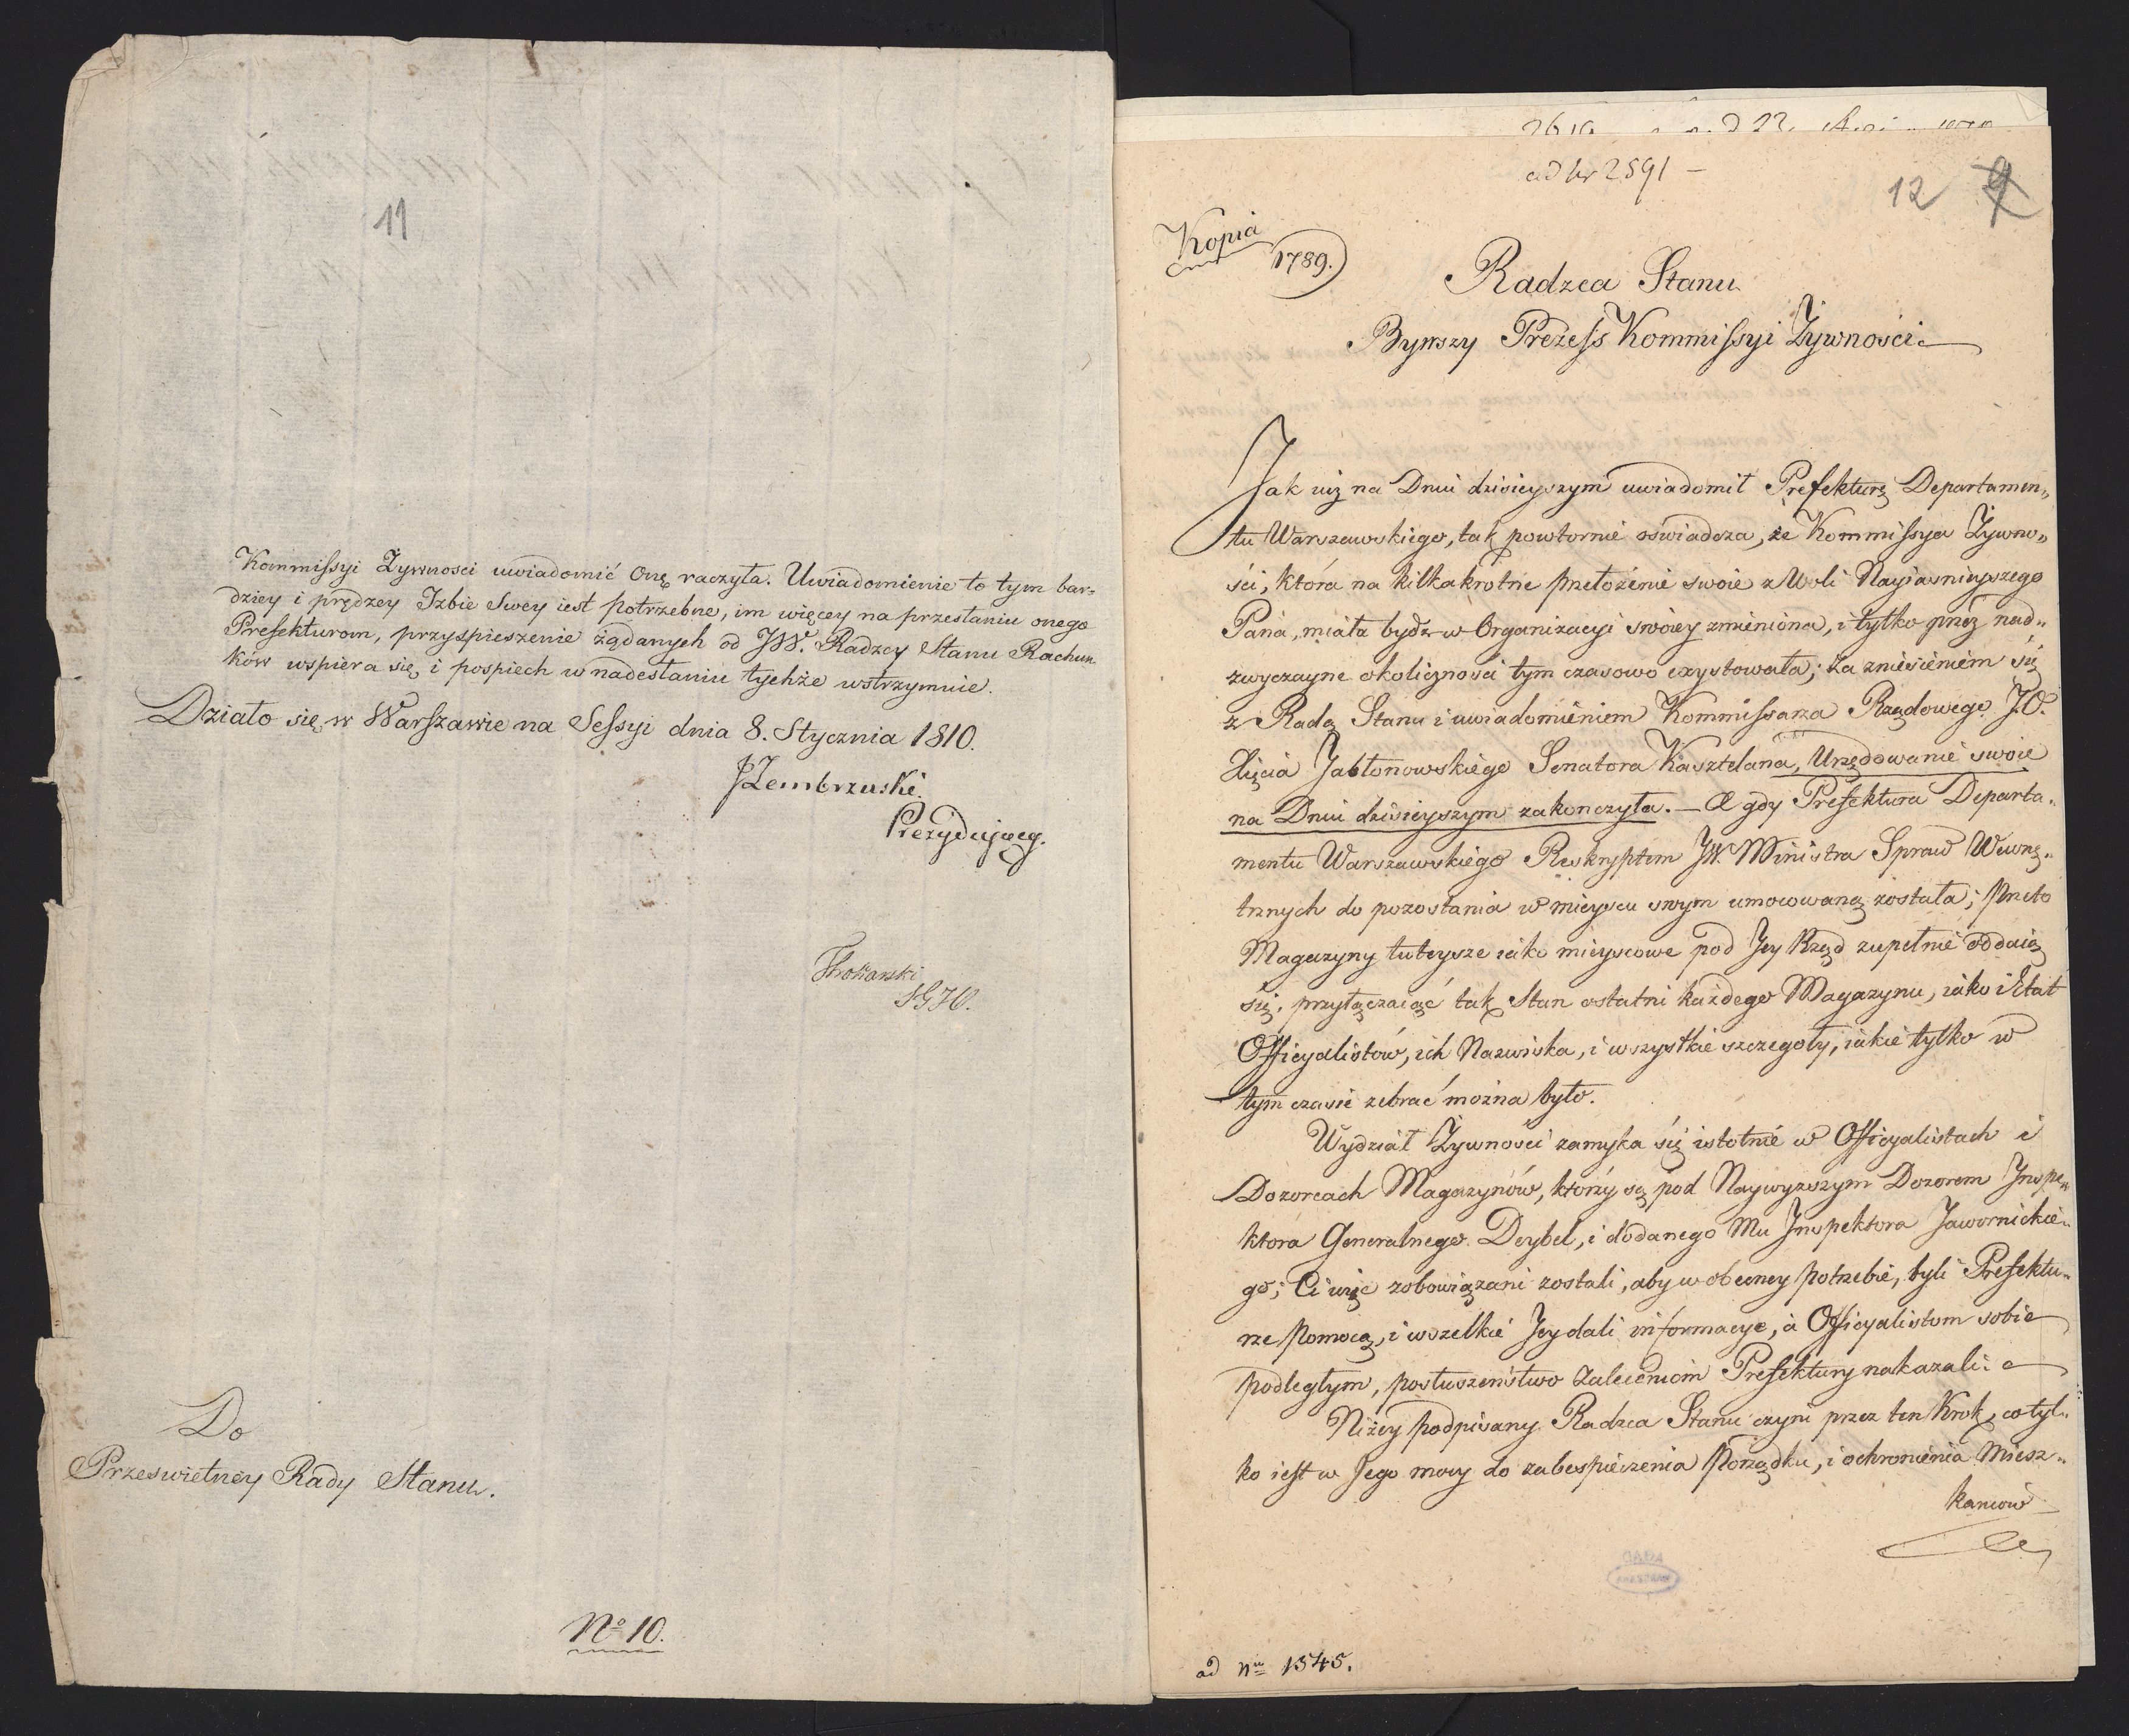 11
Kommissyi Zywnosci uwiadomić Onę raczyła. Uwiadomienie to tym bar-
dziey i prędzey Izbie Swey iest potrzebne, im więcey na przesłaniu onego
Prefekturom, przyspieszenie żądanych od JW. Radzcy Stanu Rachun
ków wspiera się, i pospiech w nadesłaniu tychże wstrzymuie.
Działo się w Warszawie na Sessyi dnia 8. Stycznia 1810.
JZembrzuski.
Prezyduiący.
Do
Przeswietney Rady Stanu.
No 10.
ad Nr 2591 –
12 9
Kopia
1789.
Radzca Stanu
Bywszy Prezess Kommissyi Żywności
Jak iuż na Dniu dzisieyszym uwiadomił Prefekturę Departamen„
tu Warszawskiego, tak powtornie oświadcza, że Kommissya Żywno„
ści, która na kilkakrotne przełożenie swoie z Woli Nayiaśnieyszego
Pana, miała bydz w Organizacyi swoiey zmieniona, i tylko przez nad„
zwyczayne okoliczności tym czasowo exystowała; za zniesieniem się
z Radą Stanu i uwiadomieniem Kommissarza Rządowego J.O.
Xięcia Jabłonowskiego Senatora Kasztelana, Urzędowanie swoie
na Dniu dzisieyszym zakonczyła. – A gdy Prefektura Departa„
mentu Warszawskiego Reskryptem JW. Ministra Spraw Wewnę„
trznych do pozostania w mieyscu swym umocowaną została; przeto
Magazyny tuteysze iako mieyscowe pod Jey Rząd zupełnie oddaią
się, przyłączaiąc tak Stan ostatni każdego Magazynu, iako i Etat
Officyalistów, ich Nazwiska, i wszystkie szczegoły, iakie tylko w
tym czasie zebrać można było.
Wydział Żywności zamyka się istotnie w Officyalistach i
Dozorcach Magazynów, którzy są pod Naywyzszym Dozorem Inspe„
ktora Generalnego Deybel, i dodanego Mu Inspektora Jawornickie„
go; Ci więc zobowiązani zostali, aby w obecney potrzebie, byli Prefektu„
rze pomocą, i wszelkie Jey dali informacye, a Officyalistom sobie
podległym, posłuszeństwo Zaleceniom Prefektury nakazali.
Niżey podpisany Radzca Stanu czyni przez ten Krok, co tyl„
ko iest w Jego mocy do zabespieczenia Porządku, i ochronienia Miesz„
kancow
ad Nm 1545.